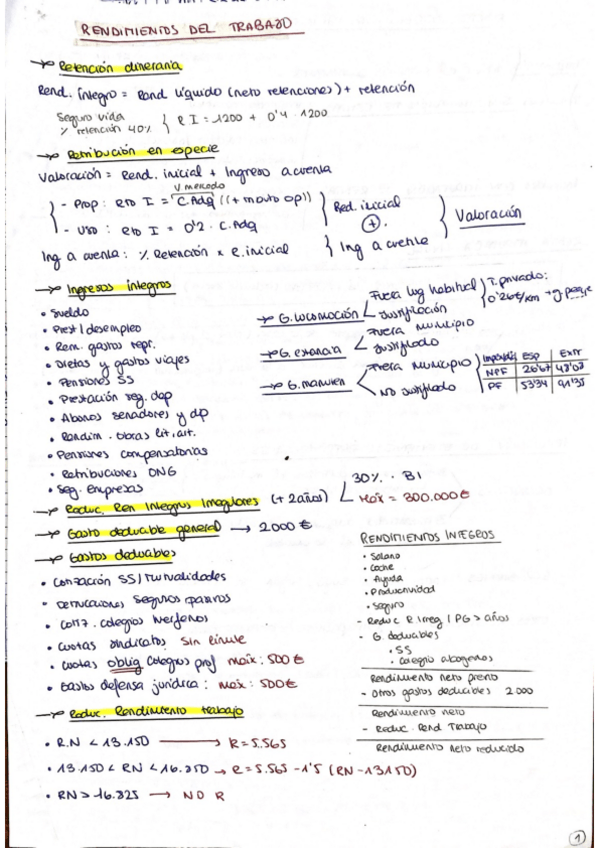 RENDIMIENTOS DEL TRABAJO
Retención dineraria
Rend. íntegro = Rend líquido (neto retenciones) + retención
Seguro vida
% retención 40%
R I = 1200 + 0'4 · 1200
Retribución en especie
Valoración = Rend. inicial + Ingreso a cuenta
V mercado
- Prop: Rto I = C.Adq (+ mauto op)
- Uso: Rto I = 0'2 · C. Adq
Red. inicial
+
Ing a cuenta
Valoración
Ing a cuenta: % Retención x R. inicial
Ingresos íntegros
• Sueldo
• Prest / desempleo
• Rem. gastos repr.
• Dietas y gastos viajes
• Pensiones SS
• Prestación seg. dap
• Abonos senadores y dip
• Rendim. obras lit. art.
• Pensiones compensatorias
• Retribuciones ONG
• Seg. empresas
G. locomoción
Fuera lug habitual
Justificación
T. privado:
0'26€/km + g peaje
G. estancia
Fuera municipio
Justificado
G. manuten
Fuera Municipio
No justificado
Esp Extr
NPF 26'67 48'08
PF 53'34 91'35
Reduc. Ren Integros Irregulares (+ 2 años)
30% · BI
Máx = 300.000€
Gasto deducible general → 2000 €
Gastos deducibles
• Cotización SS / Mutualidades
• Detracciones seguros pasivos
• Cotiz. colegios huérfanos
• Cuotas sindicatos: Sin límite
• Cuotas oblig Colegios prof máx: 500€
• Gastos defensa jurídica: máx: 300€
RENDIMIENTOS INTEGROS
• Salario
• Coche
• Ayuda
• Productividad
• Seguro
- Reduc R Irreg / PG > años
- G. deducibles
• SS
• Colegio abogados
Rendimiento neto previo
- Otros gastos deducibles 2000
Rendimiento neto
- Reduc. Rend Trabajo
Rendimiento neto reducido
Reduc. Rendimiento trabajo
• R.N < 13.150 → R = 5.565
• 13.150 < RN < 16.850 → R = 5.565 - 1'5 (RN - 13150)
• RN > 16.825 → NO R
1